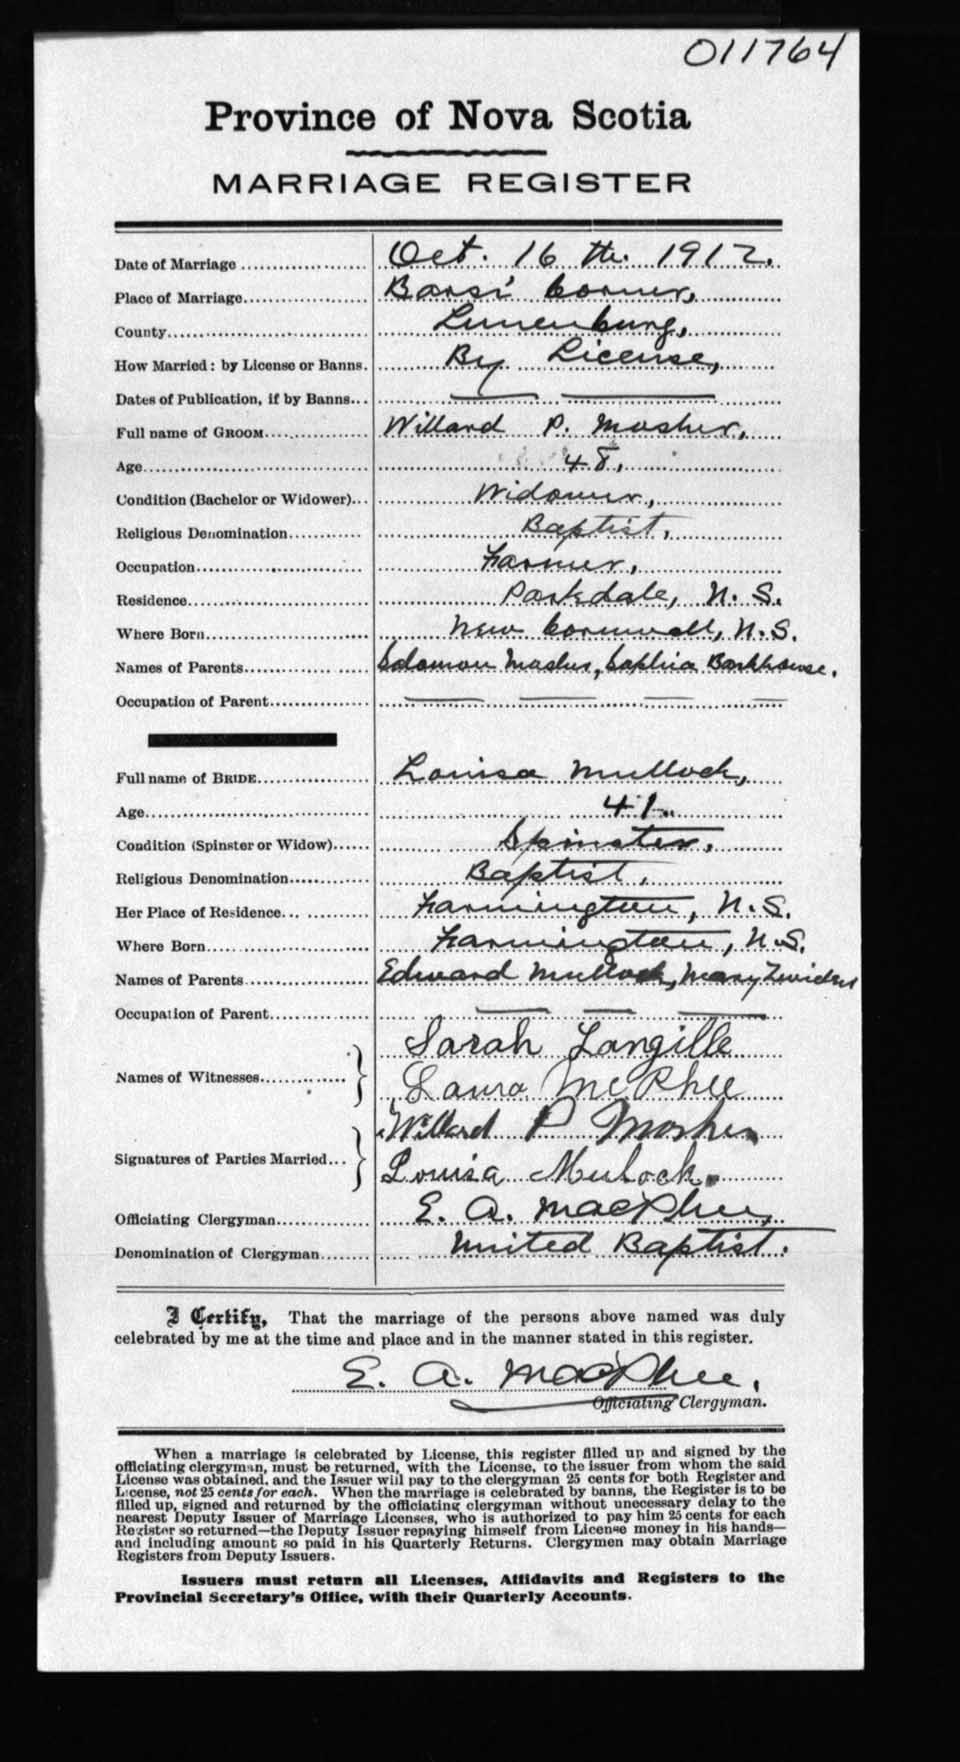 011764
Province of Nova Scotia
MARRIAGE REGISTER
Date of Marriage Oct. 16 th. 1912.
Place of Marriage Barss' Corner,
County Lunenburg,
How Married: by License or Banns. By License,
Dates of Publication, if by Banns
Full name of GROOM Willard P. Mosher,
Age 48,
Condition (Bachelor or Widower) Widower,
Religious Denomination Baptist,
Occupation Farmer,
Residence Parkdale, N. S.
Where Born New Cornwall, N.S.
Names of Parents Solomon Mosher, Sophia Barkhouse.
Occupation of Parent
Full name of BRIDE Louisa Mullock,
Age 41.
Condition (Spinster or Widow) Spinster,
Religious Denomination Baptist,
Her Place of Residence Farmington, N.S.
Where Born Farmington, N.S.
Names of Parents Edward Mullock, Mary
Occupation of Parent
Names of Witnesses Sarah Langille
Laura McPhee
Signatures of Parties Married Willard P Mosher
Louisa Mulock.
Officiating Clergyman E. A. MacPhee,
Denomination of Clergyman United Baptist.
I Certify, That the marriage of the persons above named was duly
celebrated by me at the time and place and in the manner stated in this register.
E. A. MacPhee,
Officiating Clergyman.
When a marriage is celebrated by License, this register filled up and signed by the
officiating clergyman, must be returned, with the License, to the issuer from whom the said
License was obtained, and the Issuer will pay to the clergyman 25 cents for both Register and
License, not 25 cents for each. When the marriage is celebrated by banns, the Register is to be
filled up, signed and returned by the officiating clergyman without unnecessary delay to the
nearest Deputy Issuer of Marriage Licenses, who is authorized to pay him 25 cents for each
Register so returned—the Deputy Issuer repaying himself from License money in his hands—
and including amount so paid in his Quarterly Returns. Clergymen may obtain Marriage
Registers from Deputy Issuers.
Issuers must return all Licenses, Affidavits and Registers to the
Provincial Secretary's Office, with their Quarterly Accounts.